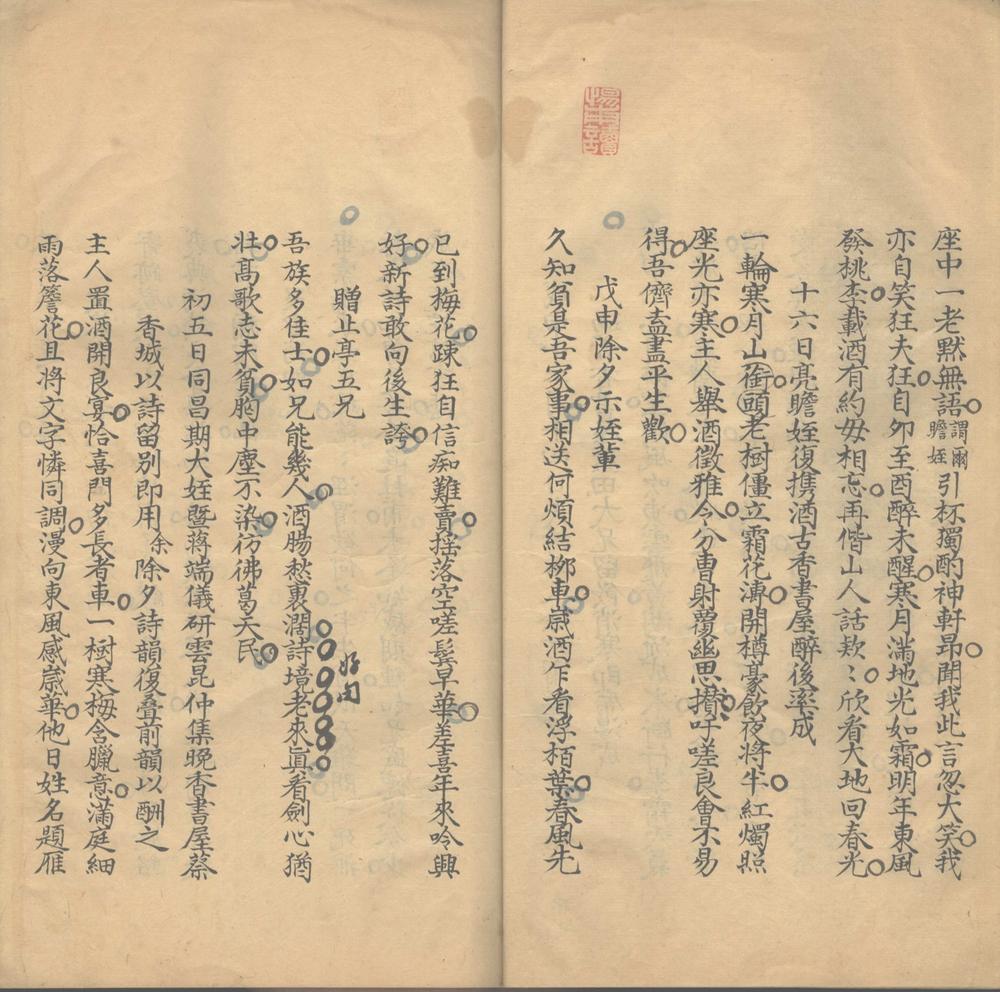 座中一老黙無語謂爾瞻姪引杯獨酌神軒昻聞我此言忽大笑我
亦自笑狂夫狂自卯至酉醉未醒寒月滿地光如霜明年東風
發桃李載酒有約毋相忘再偕山人話欵〻欣看大地回春光
十六日亮瞻姪復携酒古香書屋醉後率成
一輪寒月山銜頭老樹僵立霜花漙開樽豪飲夜將半紅燭照
座光亦寒主人舉酒徵雅令分曹射覆幽思攢吁嗟良會不易
得吾儕盍盡平生歡
戊申除夕示姪輩
久知貧是吾家事相送何煩結柳車歲酒乍看浮栢葉春風先
已到梅花踈狂自信痴難賣揺落空嗟鬂早華差喜年來吟興
好新詩敢向後生誇
贈止亭五兄
吾族多佳士如兄能幾人酒腸愁裏濶詩境老來眞看劍心猶
好句
壮髙歌志未貧胸中塵不染彷彿葛天民
初五日同昌期大姪暨蔣端儀研雲昆仲集晚香書屋蔡
香城以詩留别即用余除夕詩韻復叠前韻以酬之
主人置酒開良宴恰喜門多長者車一樹寒梅含臘意滿庭細
雨落簷花且將文字憐同調漫向東風感歲華他日姓名題雁